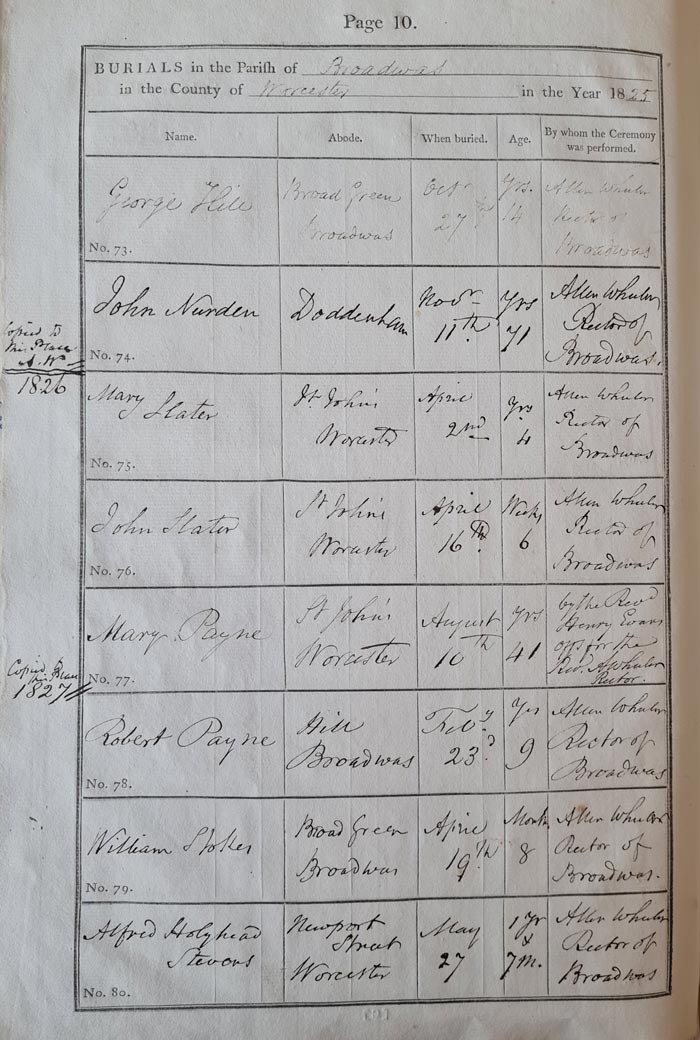 Page 10.
BURIALS in the Parish of Broadwas
in the County of Worcester in the Year 1825
Name. Abode. When buried. Age. By whom the Ceremony was performed.
George Hill
Broad Green
Broadwas
Octr
27th
Yrs.
14
Allen Wheeler
Rector of
Broadwas
No. 73.
John Nurden
Doddenham
Novr
11th
Yrs
71
Allen Wheeler
Rector of
Broadwas.
No. 74.
Copied to
this Place
A. W
1826
Mary
Slater
St John's
Worcester
April
2nd
Yrs
4
Allen Wheeler
Rector of
Broadwas
No. 75.
John Slater
St John's
Worcester
April
16th.
Weeks
6
Allen Wheeler
Rector of
Broadwas
No. 76.
Mary Payne
St John's
Worcester
August
10th
Yrs
41
by the Revd
Henry Evans
offg for the
Revd. A Wheeler
Rector.
No. 77.
Copied
this Place
1827
Robert Payne
Hill
Broadwas
Feby
23d
Yrs
9
Allen Wheeler
Rector of
Broadwas
No. 78.
William Stokes
Broad Green
Broadwas
April
19th
Months
8
Allen Wheeler
Rector of
Broadwas.
No. 79.
Alfred Holyhead
Stevens
Newport
Street
Worcester
May
27
1 Yr
&
7m.
Allen Wheeler
Rector of
Broadwas
No. 80.